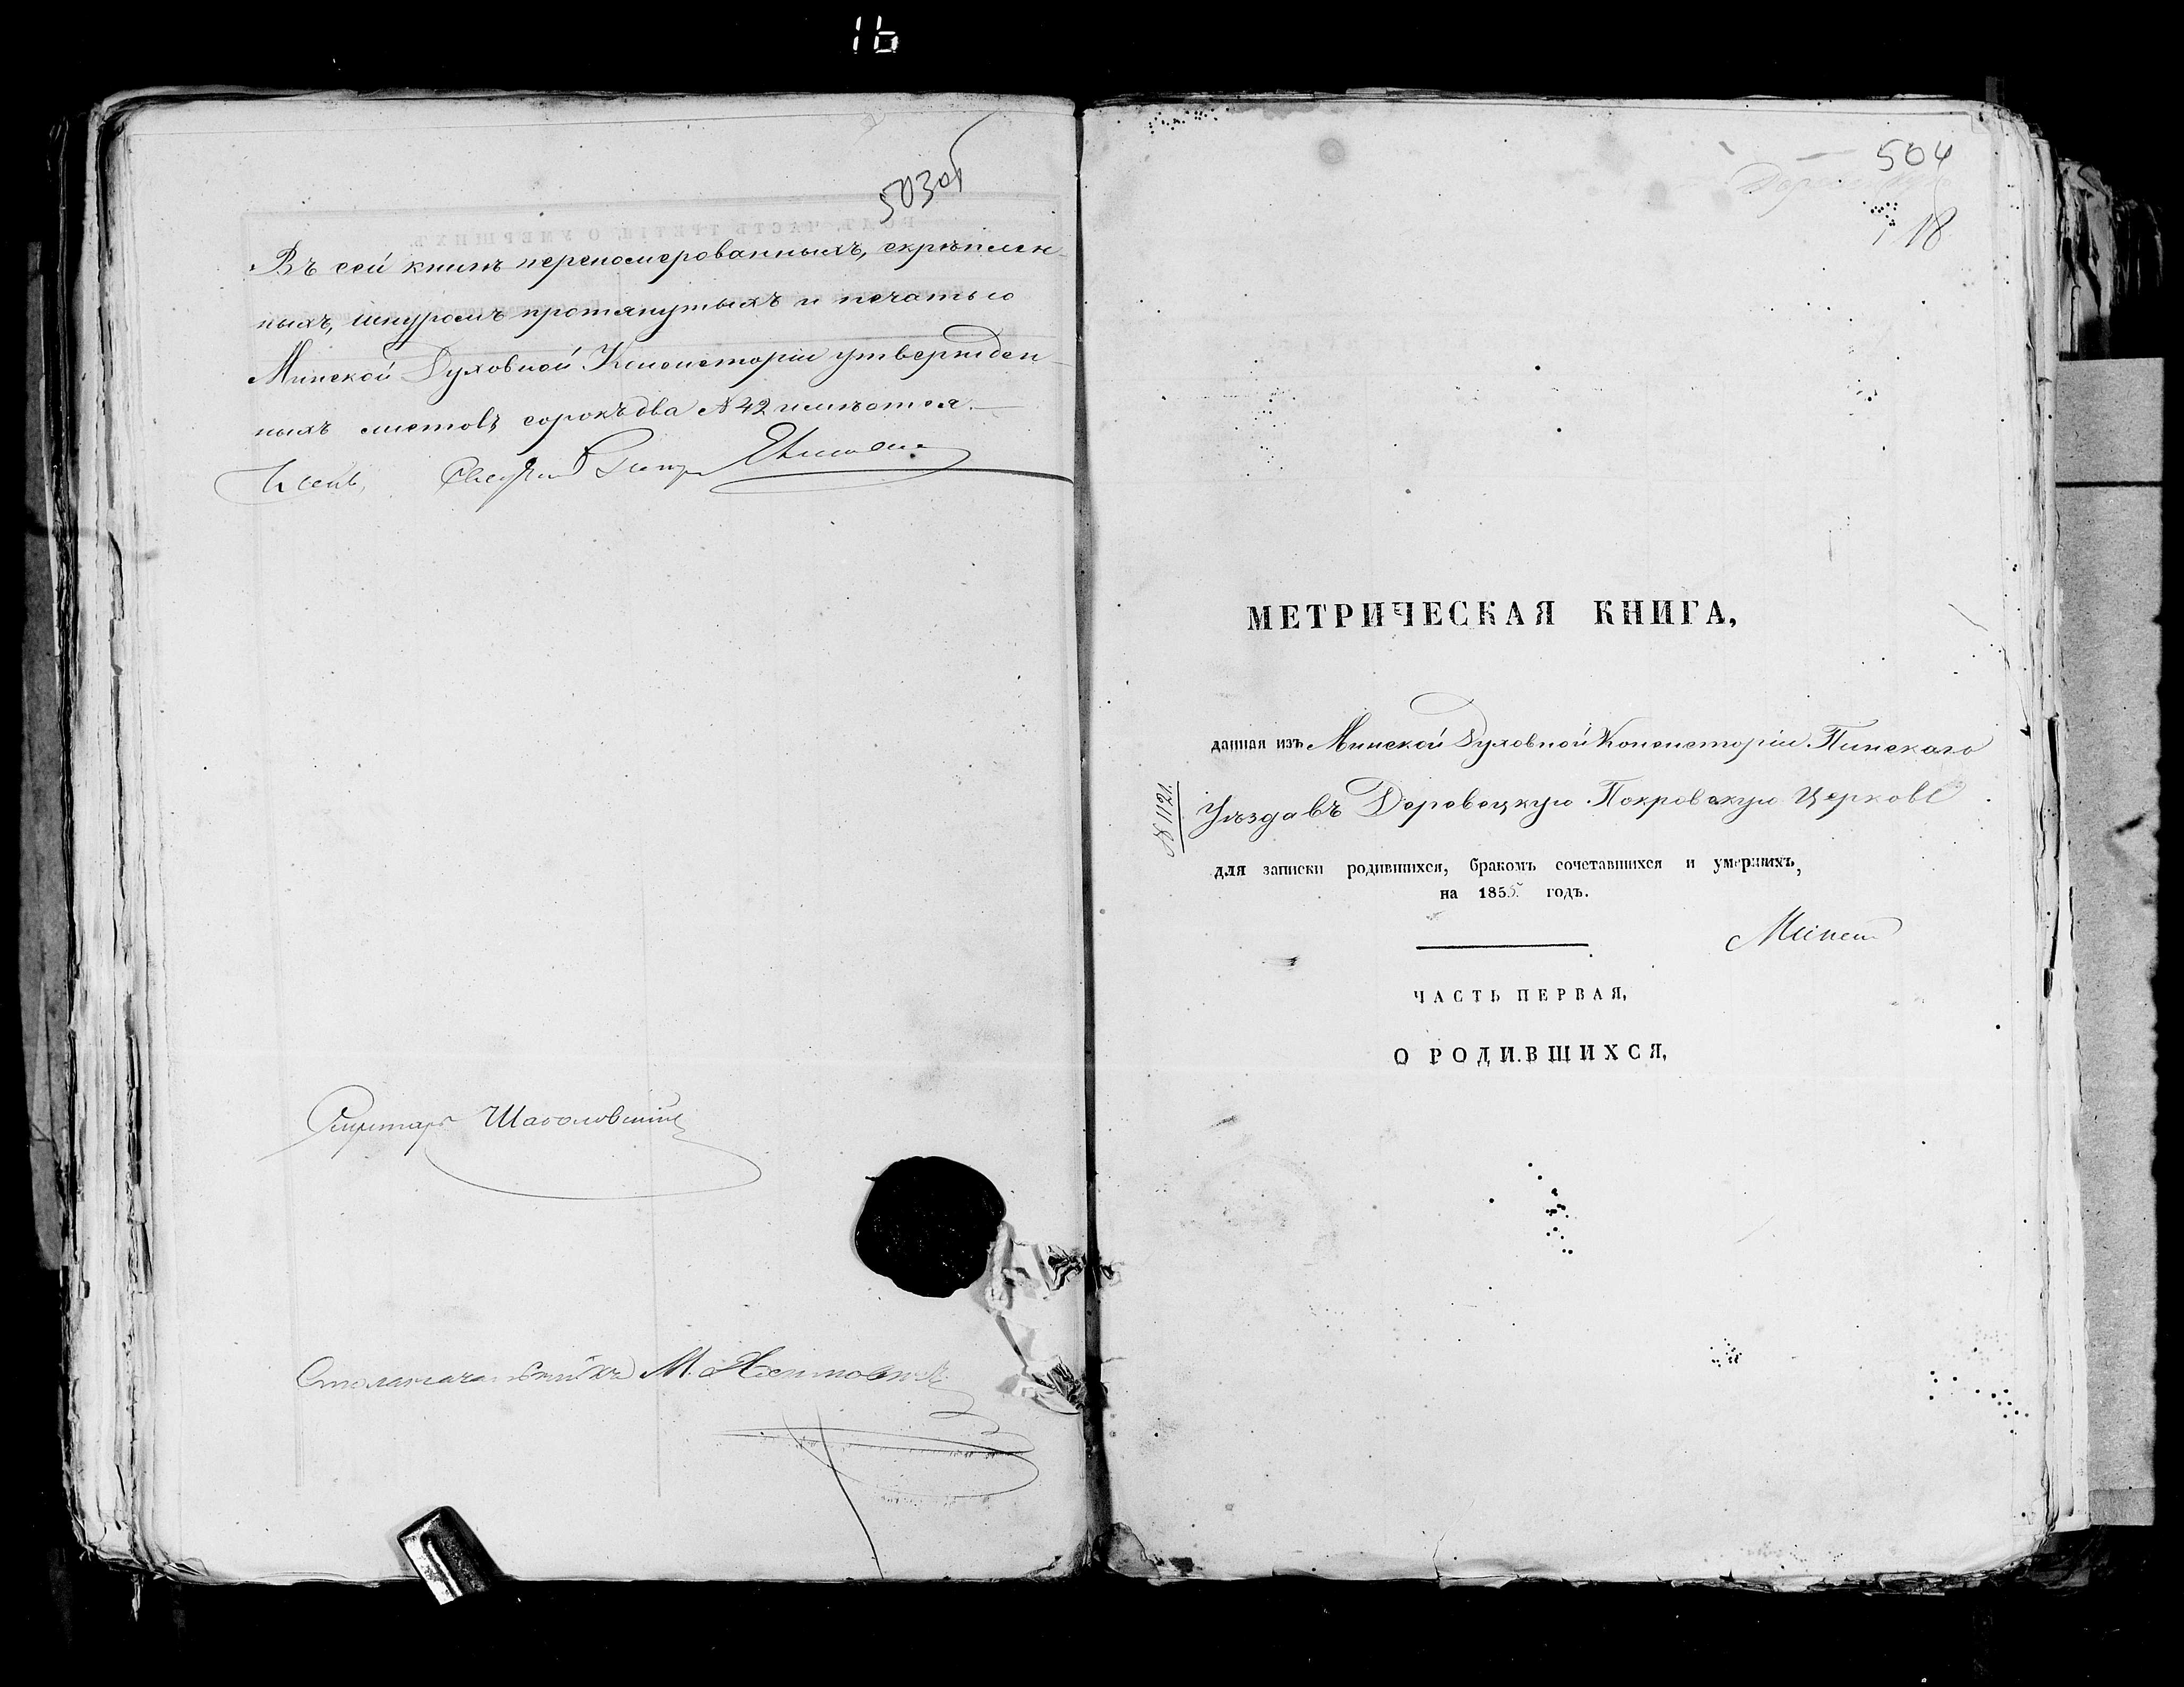 16
503об
Въ сей книгѣ переномерованныхъ, скрѣплен-
ныхъ, шнуромъ протянутыхъ и печатью
Минской Духовной Консисторіи утвержден-
ныхъ листовъ сорокъ два № 42 имѣются.
Секретарь Шаболовский
Столоначальникъ М.
504
18
МЕТРИЧЕСКАЯ КНИГА,
данная изъ Минской Духовной Консисторіи Пинскаго
№ 1121.
Уѣзда въ Деревецкую Покровскую Церковь
для записки родившихся, бракомъ сочетавшихся и умершихъ,
на 1855 годъ.
ЧАСТЬ ПЕРВАЯ,
О РОДИВШИХСЯ,